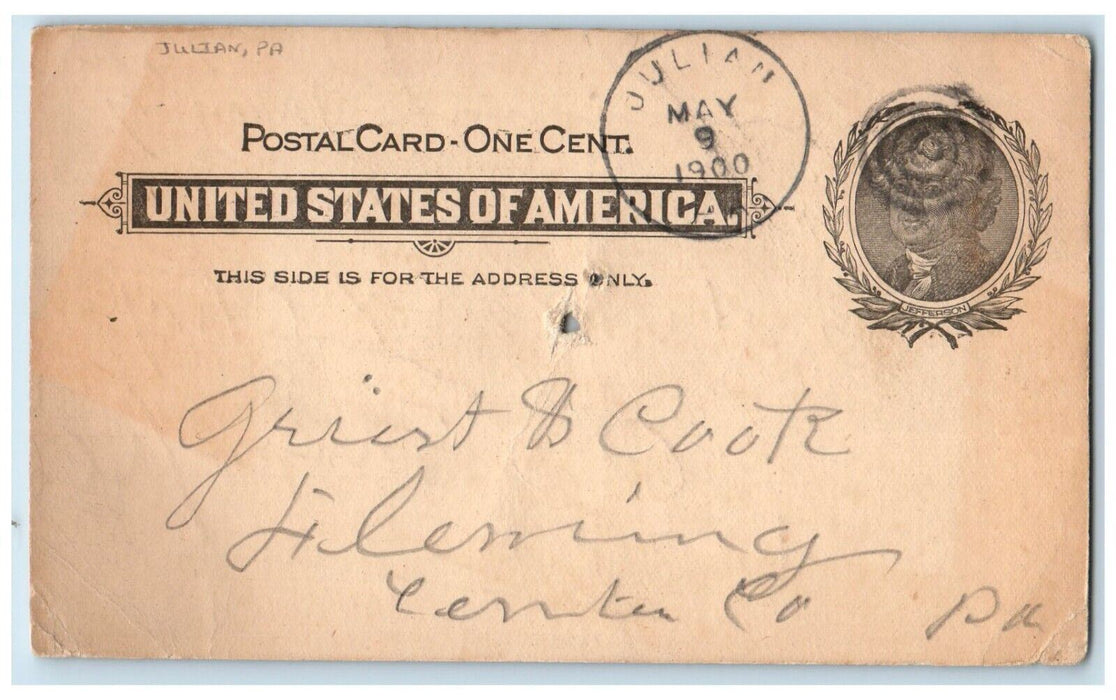 JULIAN, PA
JULIAN
MAY
9
1900
POSTAL CARD - ONE CENT.
UNITED STATES OF AMERICA.
THIS SIDE IS FOR THE ADDRESS ONLY.
JEFFERSON
Griest & Cook
Fleming
Center Co Pa